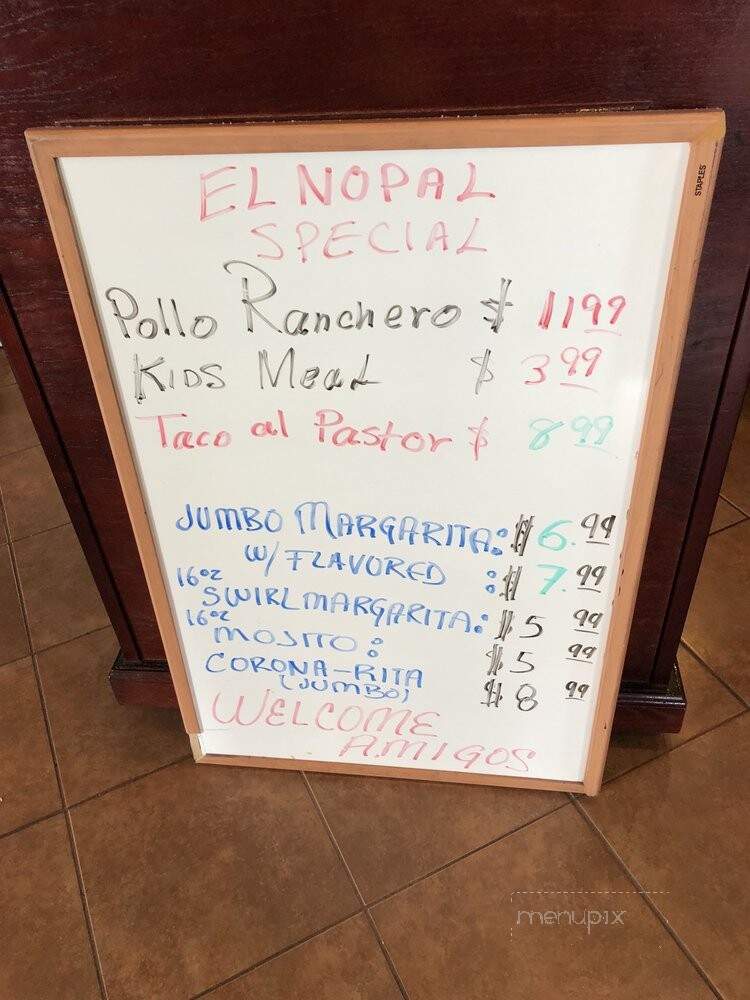 STAPLES
EL NOPAL
SPECIAL
Pollo Ranchero $ 11 99
KIDS Meal $ 3 99
Taco al Pastor $ 8 99
JUMBO MARGARITA: $ 6. 99
W/ FLAVORED : $ 7. 99
16oz SWIRL MARGARITA: $ 5 99
16oz MOJITO : $ 5 99
CORONA-RITA $ 8 99
(JUMBO)
WELCOME
AMIGOS
menupix